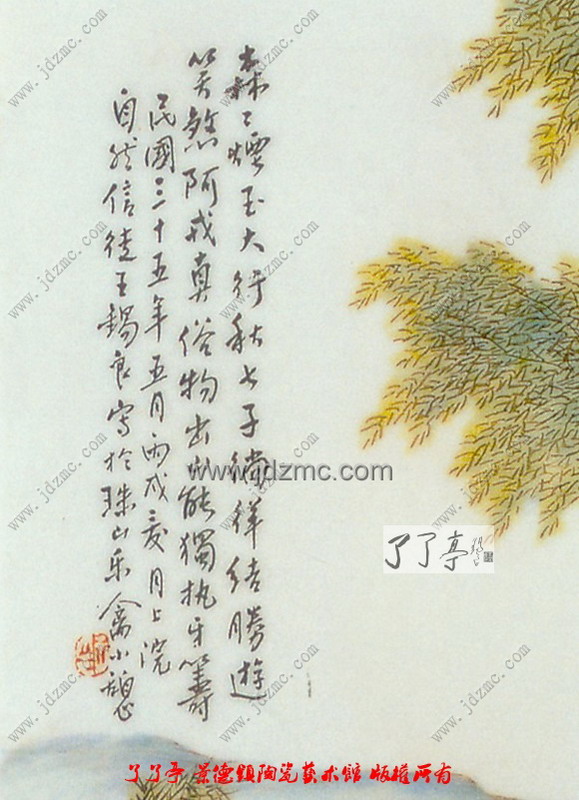 森〻煙玉大行秋七子徜徉结勝遊
笑煞阿戎真俗物出能獨执牙籌
民國三十五年五月丙戌夏月上浣
自然信徒王錫良寫於珠山乐禽小憩
www.jdzmc.com
了了亭
了了亭 景德鎮陶瓷藝术館 版權所有